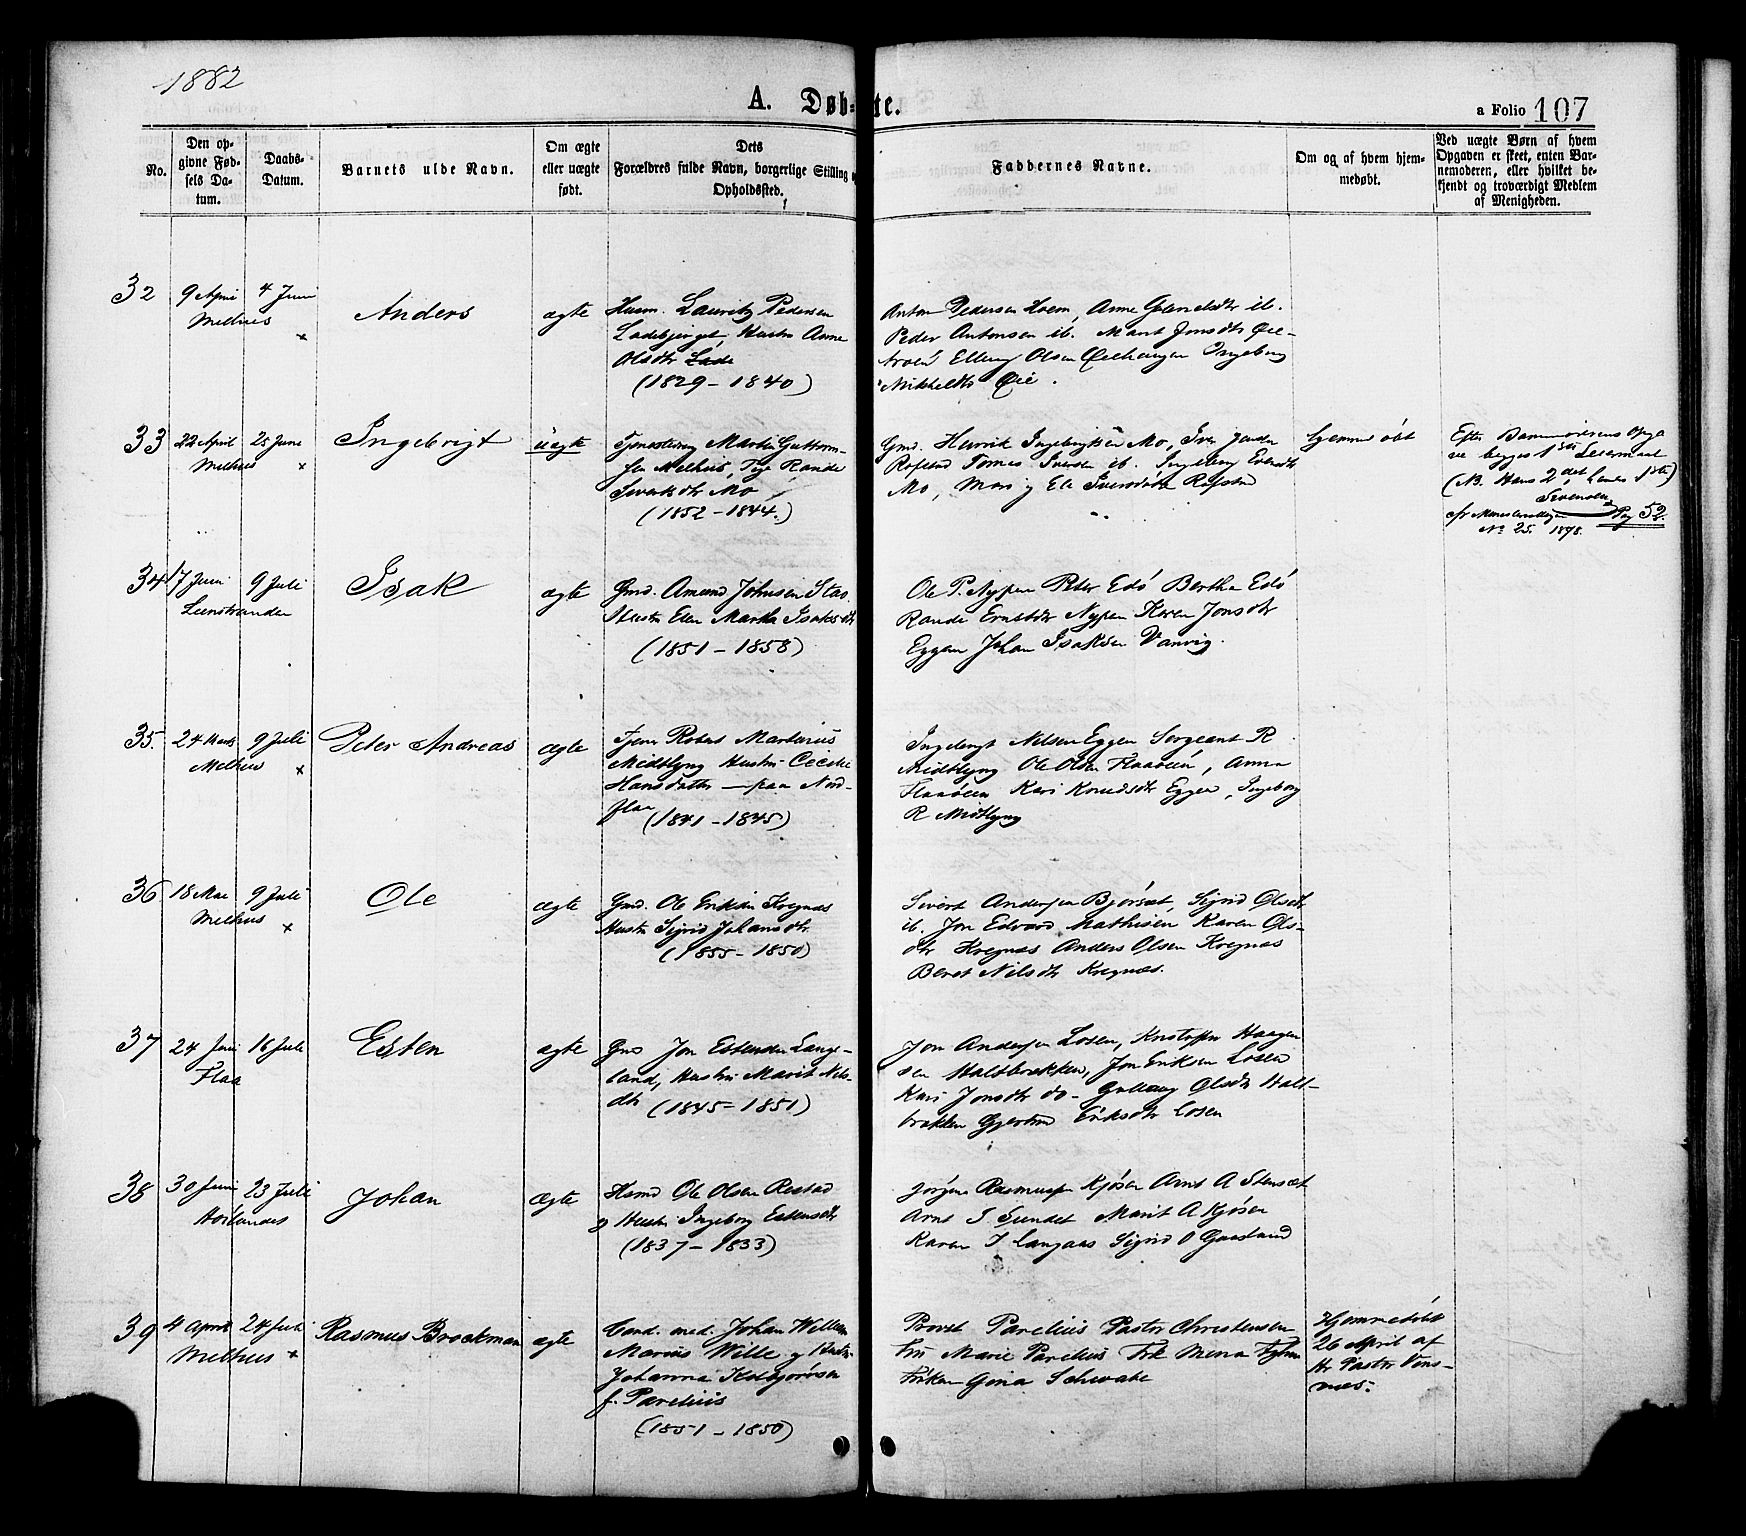 1882
A. Døb- te.
a Folio 107
No.
Den op-
givne Fød-
sels Da-
tum.
Daabs-
Datum.
Barnets fulde Navn.
Om ægte
eller uægte
født.
Dets
Forældres fulde Navn, borgerlige Stilling
Opholdssted.
Faddernes Navne.
Om og af hvem hjem-
medøbt.
Ved uægte Børn af hvem
Opgaven er skeet, enten Bar-
nemoderen, eller hvilket be-
kjendt og troværdigt Medlem
af Menigheden.
32
9 April
4 Juni
Melhus
Anders
ægte
Husm. Lauritz Pedersen
Ladebjerget, Hustru Anne
Olsdtr Lade
(1829 - 1840)
Anton Pedersen Hoem, Anne ib.
Peder Antonsen ib. Marit Jonsdtr Øie-
Elling Olsen Øiehaugen Ingeborg
Mikkelsdtr Øie.
33
22 April
25 Juni
Melhus
Ingebrigt
uægte
Tjenestedreng Martin Guttorm-
sen Melhus, Tøs Rande
Sivertsdtr Mo
(1852 - 1844.)
Gmd. Henrik Ingebrigtsen Mo, Iver
Rofstad Tomas Iversen ib. Ingeborg Evensdtr
Mo, Mari og Eli Iversdøtre Rofstad
hjemmedøbt
Efter Barnmoderens Opga
ve begges 1ste Leiermaal
(NB. Hans 2det, hendes 1ste)
Pag 52.
No 25. 1878.
34
17 Juni
9 Juli
Leinstranden
Isak
ægte
Gmd. Amund Johnsen Stav
Hustru Ellen Martha Isaksdtr
(1851 - 1858)
Ole P. Nypan Peter Edø Bertha Edø
Rande Nypan Karen Jonsdtr
Eggen Johan Isaksen Vanvig.
35.
24 Marts
9 Juli
Melhus
Peter Andreas
ægte
Robert Martinus
Midtlyng Hustru Cecilie
Hansdatter - paa Nord-
flaa
(1841 - 1845)
Ingebrigt Nilsen Eggen Sergeant R
Midtlyng Ole Olsen Flaaøien, Anna
Flaaøien Kari Knudsdtr Eggen, Ingeborg
R Midtlyng
36
18 Mai
9 Juli
Melhus
Ole
ægte
Gmd. Ole Eriksen Kregnæs
Hustru Sigrid Johansdtr.
(1855 - 1850)
Sivert Andersen Bjørsæt, Sigrid Olsdtr
ib. Jon Edvard Mathisen Karen Ols-
dtr Kregnæs Anders Olsen Kregnæs
Beret Nilsdtr Kregnæs.
37
24 Juni
16 Juli
Flaa
Esten
ægte
Gmd Jon Estensen Lange-
land, Hustru Marit Nils-
dtr (1845 - 1851)
Jon Andersen Losen, Kristoffer Haagen
sen Haltbrækken, Jon Eriksen Losen
Kari Jonsdtr do - Gulloug Olsdtr Halt-
brækken Gjertrud Eriksdtr Losen
38
30 Juni
23 Juli
Hørlandes
Johan
ægte
Husmd Ole Olsen Restad
og Hustru Ingeborg Estensdtr
(1837 - 1833)
Jørgen Rasmussen Kjøsen Arnt A Stensæt
Arnt J Sundet Marit A Kjøsen
Karen J Langaas Sigrid O Gaasland
39
4 April
24 Juli
Melhus
Rasmus Brockman
ægte
Cand. med. Johan Willem
Marius Wille og Hustru
Johanna Kolbjørnsen
f. Parelius
(1851 - 1850)
Provst Parelius Pastor Christensen
Fru Marie Parelius Frk Mena
Frøken Gina Schwabe
Hjemmedøbt
26 April af
Hr Pastor Vens-
mos.